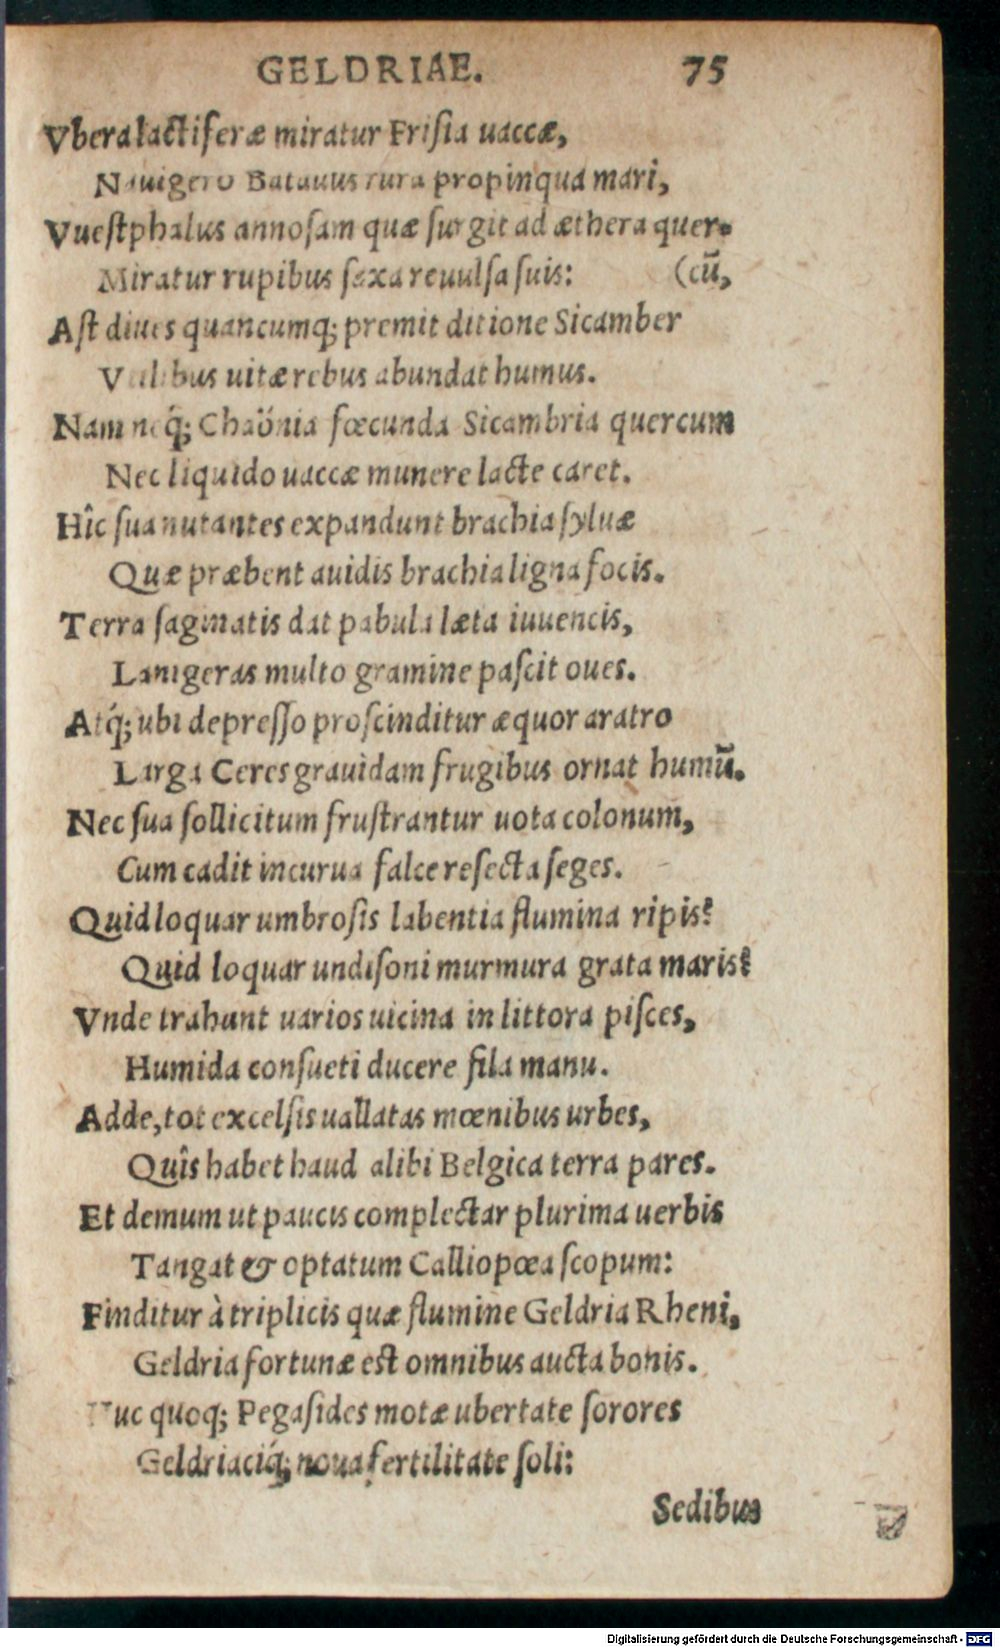 GELDRIAE. 75
Vbera lactiferæ miratur Frisia uaccæ,
Nauigero Batauus rura propinqua mari,
Vuestphalus annosam quæ surgit ad æthera quer-
Miratur rupibus saxa reuulsa suis: (cū,
Ast diues quancumq; premit ditione Sicamber
Vtilibus uitæ rebus abundat humus.
Nam neq́; Chaönia fœcunda Sicambria quercum
Nec liquido uaccæ munere lacte caret.
Hîc sua nutantes expandunt brachia syluæ
Quæ præbent auidis brachia ligna focis.
Terra saginatis dat pabula læta iuuencis,
Lanigeras multo gramine pascit oues.
Atq́; ubi depresso proscinditur æquor aratro
Larga Ceres grauidam frugibus ornat humū.
Nec sua sollicitum frustrantur uota colonum,
Cum cadit incurua falce resecta seges.
Quid loquar umbrosis labentia flumina ripis?
Quid loquar undisoni murmura grata maris?
Vnde trahunt uarios uicina in littora pisces,
Humida consueti ducere fila manu.
Adde, tot excelsis uallatas mœnibus urbes,
Quîs habet haud alibi Belgica terra pares.
Et demum ut paucis complectar plurima uerbis
Tangat & optatum Calliopœa scopum:
Finditur à triplicis quæ flumine Geldria Rheni,
Geldria fortunæ est omnibus aucta bonis.
Huc quoq; Pegasides motæ ubertate sorores
Geldriaciq́; noua fertilitate soli:
Sedibus
Digitalisierung gefördert durch die Deutsche Forschungsgemeinschaft - DFG